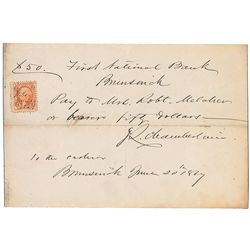 $50. First National Bank
Brunswick
Pay to Mrs. Robt.
or bearer fifty dollars
J L Chamberlain
To the cashier
Brunswick June 20th 1867